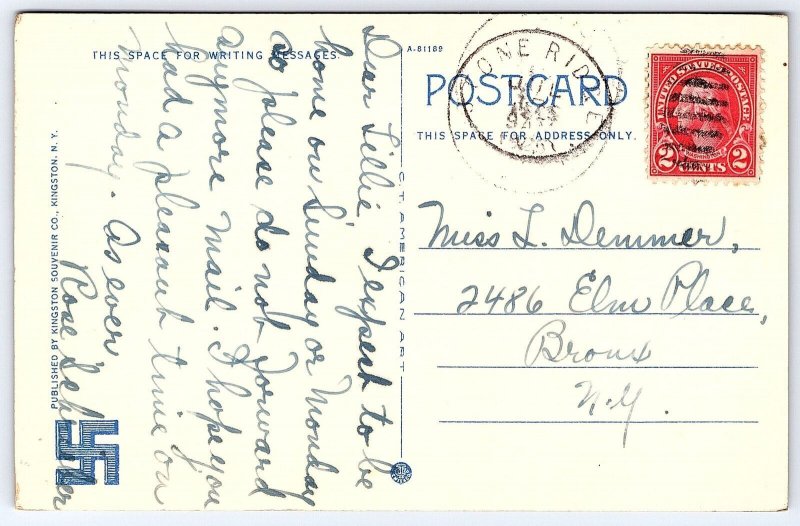 THIS SPACE FOR WRITING MESSAGES.
A-81189
POSTCARD
THIS SPACE FOR ADDRESS ONLY.
STONE RIDGE
N.Y.
UNITED STATES POSTAGE
WASHINGTON
2 CENTS 2
Dear Lillie I expect to be
home on Sunday or Monday
so please do not forward
anymore mail. I hope you
had a pleasant time on
Monday. As ever
Rose
Miss L. Demmer,
2486 Elm Place,
Bronx
N.Y.
C.T. AMERICAN ART
PUBLISHED BY KINGSTON SOUVENIR CO., KINGSTON, N. Y.